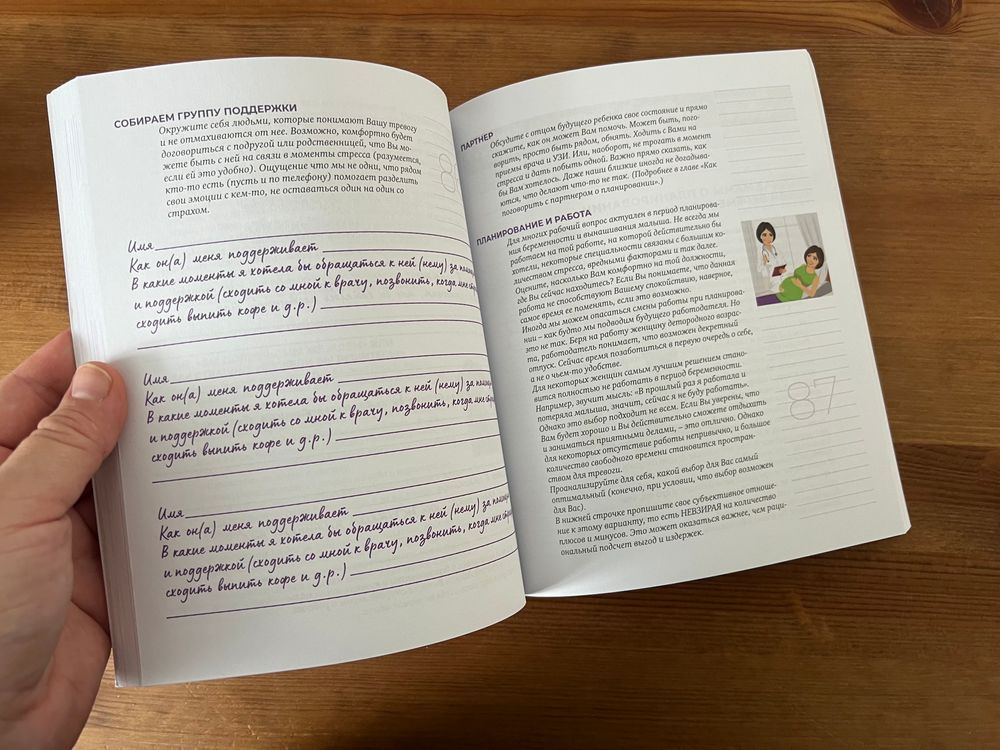 СОБИРАЕМ ГРУППУ ПОДДЕРЖКИ
Окружите себя людьми, которые понимают Вашу тревогу
и не отмахиваются от нее. Возможно, комфортно будет
договориться с подругой или родственницей, что Вы мо-
жете быть с ней на связи в моменты стресса (разумеется,
если ей это удобно). Ощущение что мы не одни, что рядом
кто-то есть (пусть и по телефону) помогает разделить
свои эмоции с кем-то, не оставаться один на один со
страхом.
8
Имя
Как он(а) меня поддерживает
В какие моменты я хотела бы обращаться к ней (нему) за
и поддержкой (сходить со мной к врачу, позвонить, когда мне
сходить выпить кофе и д.р.)
Имя
Как он(а) меня поддерживает
В какие моменты я хотела бы обращаться к ней (нему) за
и поддержкой (сходить со мной к врачу, позвонить, когда мне
сходить выпить кофе и д.р.)
Имя
Как он(а) меня поддерживает
В какие моменты я хотела бы обращаться к ней (нему) за
и поддержкой (сходить со мной к врачу, позвонить, когда мне
сходить выпить кофе и д.р.)
ПАРТНЕР
Обсудите с отцом будущего ребенка свое состояние и прямо
скажите, как он может Вам помочь. Может быть, пого-
ворить, просто быть рядом, обнять. Ходить с Вами на
приемы врача и УЗИ. Или, наоборот, не трогать в момент
стресса и дать побыть одной. Важно прямо сказать, как
бы Вам хотелось. Даже наши близкие иногда не догадыва-
ются, что делают что-то не так. (Подробнее в главе «Как
поговорить с партнером о планировании».)
ПЛАНИРОВАНИЕ И РАБОТА
Для многих рабочий вопрос актуален в период планирова-
ния беременности и вынашивания малыша. Не всегда мы
работаем на той работе, на которой действительно бы
хотели, некоторые специальности связаны с большим ко-
личеством стресса, вредными факторами и так далее.
Оцените, насколько Вам комфортно на той должности,
где Вы сейчас находитесь? Если Вы понимаете, что данная
работа не способствуют Вашему спокойствию, наверное,
самое время ее поменять, если это возможно.
Иногда мы можем опасаться смены работы при планирова-
нии – как будто мы подводим будущего работодателя. Но
это не так. Беря на работу женщину детородного возрас-
та, работодатель понимает, что возможен декретный
отпуск. Сейчас время позаботиться в первую очередь о себе,
а не о чьем-то удобстве.
Для некоторых женщин самым лучшим решением стано-
вится полностью не работать в период беременности.
Например, звучит мысль: «В прошлый раз я работала и
потеряла малыша, значит, сейчас я не буду работать».
Однако это выбор подходит не всем. Если Вы уверены, что
Вам будет хорошо и Вы действительно сможете отдыхать
и заниматься приятными делами, – это отлично. Однако
для некоторых отсутствие работы непривычно, и большое
количество свободного времени становится простран-
ством для тревоги.
Проанализируйте для себя, какой выбор для Вас самый
оптимальный (конечно, при условии, что выбор возможен
для Вас).
В нижней строчке пропишите свое субъективное отноше-
ние к этому варианту, то есть НЕВЗИРАЯ на количество
плюсов и минусов. Это может оказаться важнее, чем раци-
ональный подсчет выгод и издержек.
87